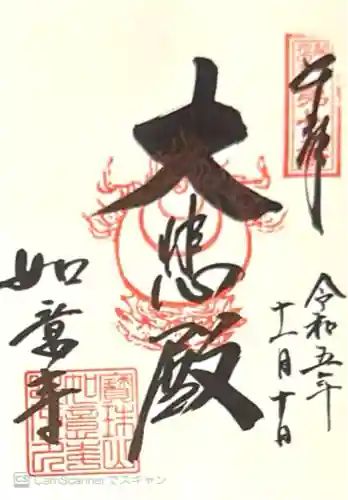 奉拝
大悲殿
令和五年
十一月十日
如意寺
寳珠山
如意寺
CS CamScanner でスキャン